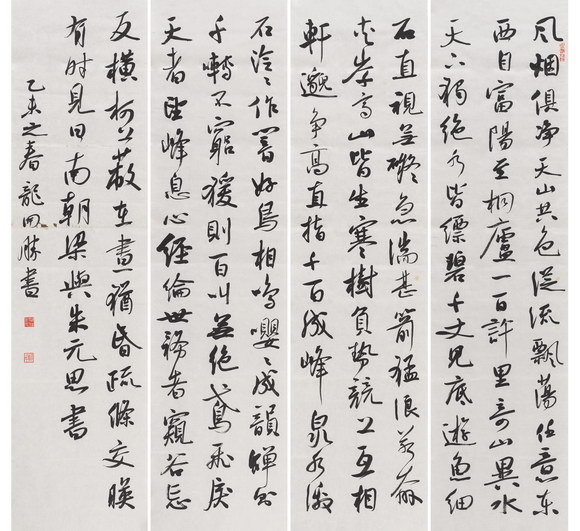 風烟俱净天山共色從流飄蕩任意东
西自富陽至桐廬一百許里奇山異水
天下獨绝水皆縹碧千丈見底遊魚細
石直視無礙急湍甚箭猛浪若奔
夾岸高山皆生寒樹負勢競上互相
軒邈争高直指千百成峰泉水激
石泠々作響好鳥相鳴嚶々成韻蟬則
千轉不窮猿則百叫無绝鳶飛戾
天者望峰息心經綸世務者窺谷忘
反橫柯上蔽在晝猶昏疏條交映
有時見日南朝梁與朱元思書
乙未之春龍勝書